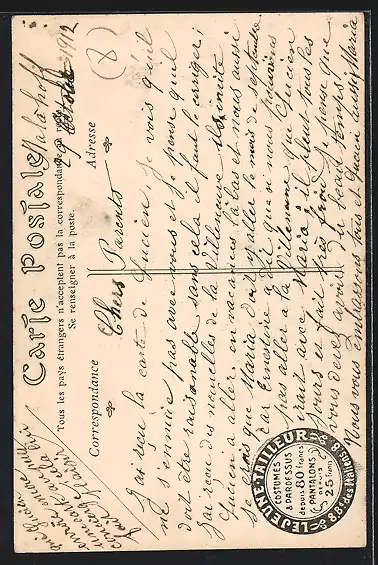 Carte Postale
Tous les pays étrangers n'acceptent pas la correspondance au recto
Se renseigner à la poste.
Correspondance
Adresse
Malakoff
9 Août 1912
(8)
Chers Parents
J'ai reçu la carte de Lucien je vois qu'il
ne s'ennuie pas avec vous et je pense qu'il
doit être raisonable sans cela il faut le corriger;
j'ai reçu des nouvelles de la Villeneuve ils invite
Lucien à aller en vacances là bas et nous aussi
je crois que Maria doit y aller le mois de septembre
car Ernestine a dit que si nous pouvions
pas aller à la Villeneuve que Lucien
irait avec Maria; il pleut tous les
jours en fait très froid je pense que
vous devez avoir du beau temps
Nous vous Embrassons tous et Lucien aussi Maria
LEJEUNE TAILLEUR
8, Bd des Italiens, 8
COSTUMES
& PARDESSUS
depuis 80 francs
PANTALONS
depuis
25 francs